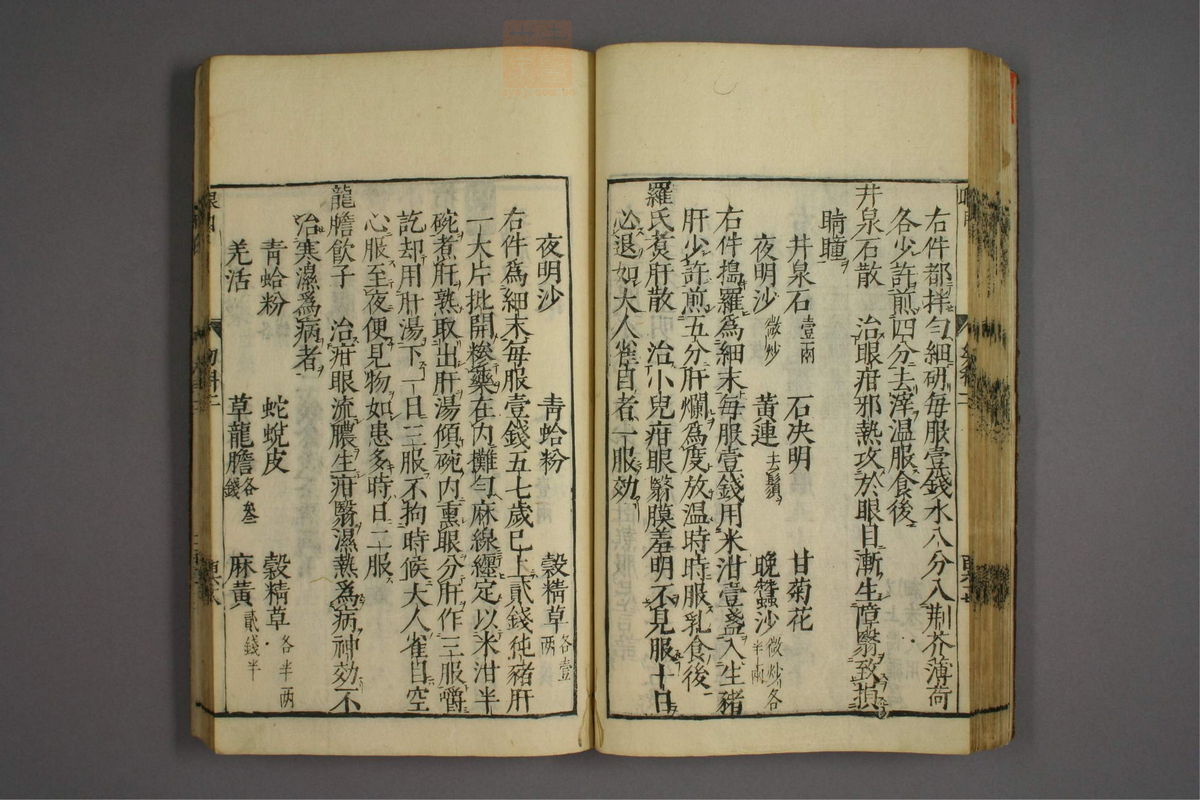 右件都拌勻細研每服壹錢水八分入荆芥薄荷
各少許煎四分去滓温服食後
井泉石散　治眼疳邪熱攻於眼目漸生障翳致損
睛瞳
井泉石壹兩　石决明　甘菊花
夜明沙微炒　黄連去鬚　晚蠶沙微炒各半兩
右件搗羅爲細末每服壹錢用米泔壹盞入生豬
肝少許煎五分肝爛爲度放温時時服乳食後
羅氏煑肝散　治小兒疳眼翳膜羞明不見服十日
必退如大人雀目者一服効
夜明沙　青蛤粉　穀精草各壹兩
右件爲細末每服壹錢五七歲已上貳錢㹠豬肝
一大片批開摻藥在内攤勻麻線纒定以米泔半
碗煮肝熟取出肝湯傾碗内熏眼分肝作三服嚼
訖却用肝湯下一日三服不拘時候大人雀目空
心服至夜便見物如患多時日二服
龍膽飲子　治疳眼流膿生疳翳濕熱爲病神効不
治寒濕爲病者
青蛤粉　蛇蛻皮　穀精草各半兩
羌活　草龍膽各叁錢　麻黄貳錢半